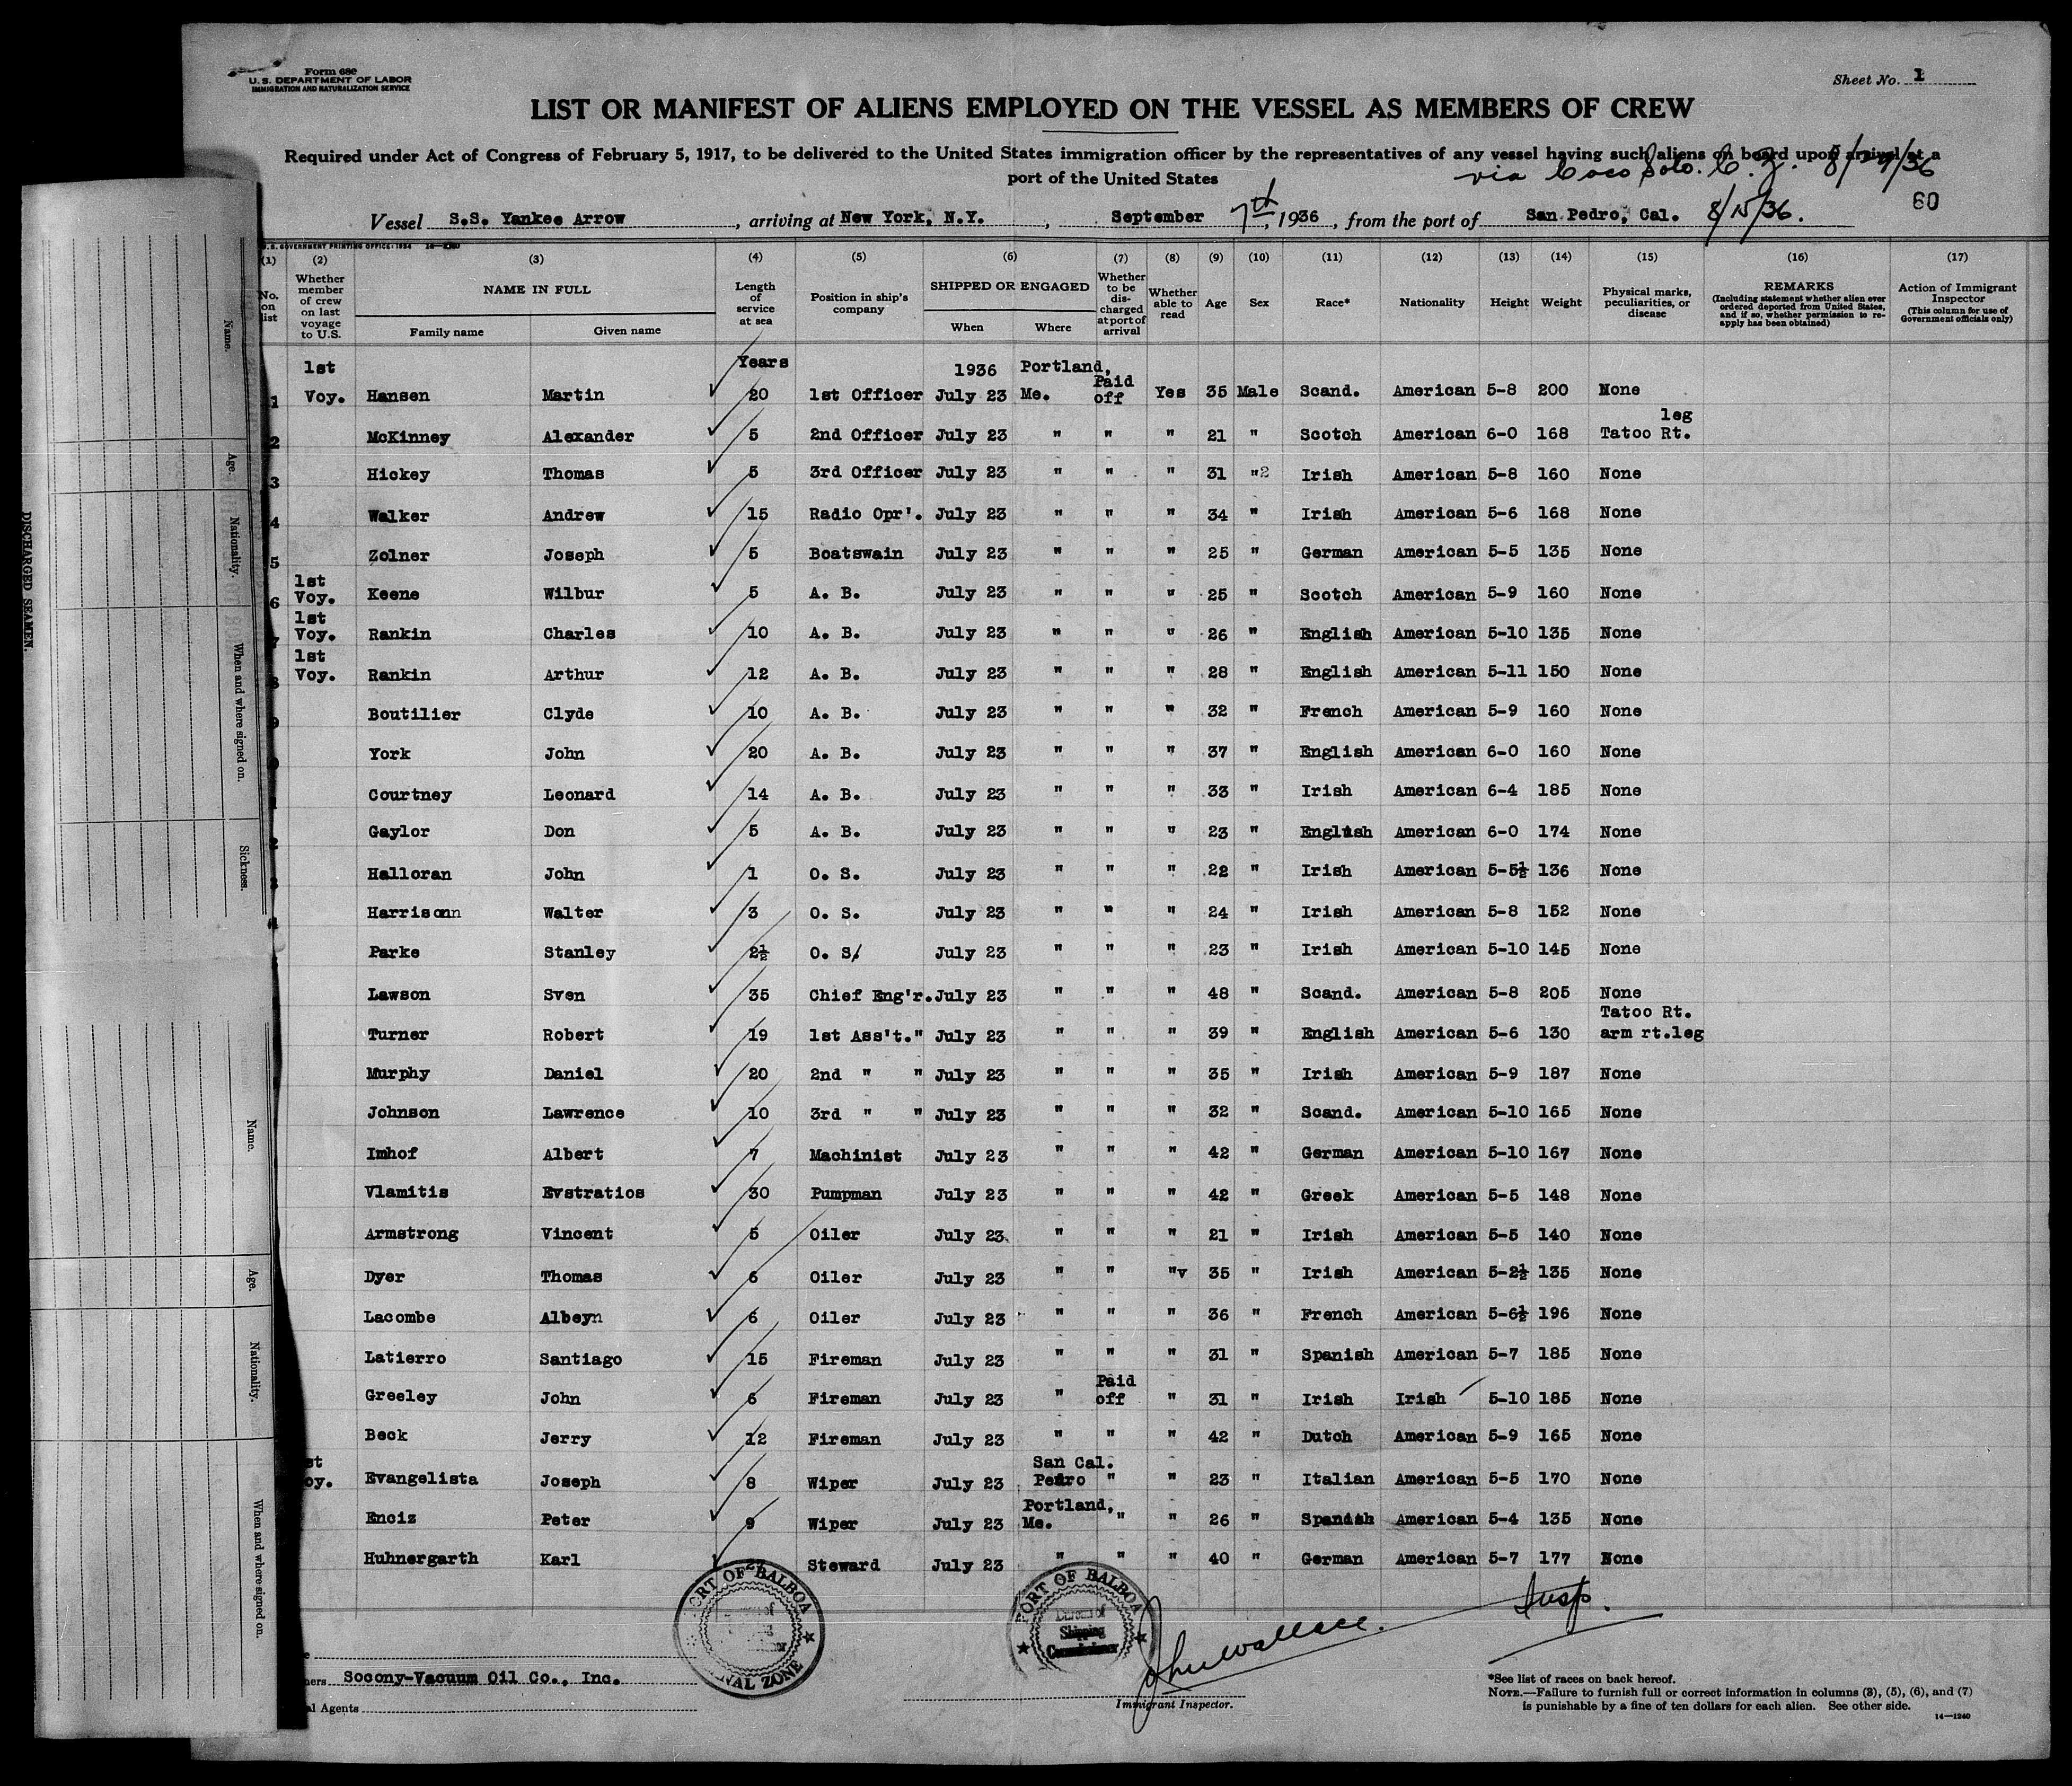 Form 680
U.S. DEPARTMENT OF LABOR
IMMIGRATION AND NATURALIZATION SERVICE
Sheet No. 1
LIST OR MANIFEST OF ALIENS EMPLOYED ON THE VESSEL AS MEMBERS OF CREW
Required under Act of Congress of February 5, 1917, to be delivered to the United States immigration officer by the representatives of any vessel having such aliens on board upon arrival at a
port of the United States
via Coco Solo. C.Z. 8/29/36
60
Vessel S.S. Yankee Arrow, arriving at New York, N.Y., September 7th, 1936, from the port of San Pedro, Cal. 8/15/36.
U.S. GOVERNMENT PRINTING OFFICE: 1934
(1) (2) (3) (4) (5) (6) (7) (8) (9) (10) (11) (12) (13) (14) (15) (16) (17)
No. on list
Whether member of crew on last voyage to U.S.
NAME IN FULL
Family name Given name
Length of service at sea
Position in ship's company
SHIPPED OR ENGAGED
When Where
Whether to be discharged at port of arrival
Whether able to read
Age
Sex
Race*
Nationality
Height
Weight
Physical marks, peculiarities, or disease
REMARKS
(Including statement whether alien ever ordered deported from United States, and if so, whether permission to reapply has been obtained)
Action of Immigrant Inspector
(This column for use of Government officials only)
1st Years 1936 Portland, Paid
1 Voy. Hansen Martin 20 1st Officer July 23 Me. off Yes 35 Male Scand. American 5-8 200 None
leg
2 McKinney Alexander 5 2nd Officer July 23 " " " 21 " Scotch American 6-0 168 Tatoo Rt.
3 Hickey Thomas 5 3rd Officer July 23 " " " 31 "2 Irish American 5-8 160 None
4 Walker Andrew 15 Radio Opr'. July 23 " " " 34 " Irish American 5-6 168 None
5 Zolner Joseph 5 Boatswain July 23 " " " 25 " German American 5-5 135 None
1st
6 Voy. Keene Wilbur 5 A. B. July 23 " " " 25 " Scotch American 5-9 160 None
1st
7 Voy. Rankin Charles 10 A. B. July 23 " " " 26 " English American 5-10 135 None
1st
8 Voy. Rankin Arthur 12 A. B. July 23 " " " 28 " English American 5-11 150 None
9 Boutilier Clyde 10 A. B. July 23 " " " 32 " French American 5-9 160 None
0 York John 20 A. B. July 23 " " " 37 " English American 6-0 160 None
1 Courtney Leonard 14 A. B. July 23 " " " 33 " Irish American 6-4 185 None
2 Gaylor Don 5 A. B. July 23 " " " 23 " English American 6-0 174 None
3 Halloran John 1 O. S. July 23 " " " 22 " Irish American 5-5½ 136 None
4 Harrisonn Walter 3 O. S. July 23 " " " 24 " Irish American 5-8 152 None
Parke Stanley 2½ O. S/ July 23 " " " 23 " Irish American 5-10 145 None
Lawson Sven 35 Chief Eng'r. July 23 " " " 48 " Scand. American 5-8 205 None
Tatoo Rt.
Turner Robert 19 1st Ass't." July 23 " " " 39 " English American 5-6 130 arm rt.leg
Murphy Daniel 20 2nd " " July 23 " " " 35 " Irish American 5-9 187 None
Johnson Lawrence 10 3rd " " July 23 " " " 32 " Scand. American 5-10 165 None
Imhof Albert 7 Machinist July 23 " " " 42 " German American 5-10 167 None
Vlamitis Evstratios 30 Pumpman July 23 " " " 42 " Greek American 5-5 148 None
Armstrong Vincent 5 Oiler July 23 " " " 21 " Irish American 5-5 140 None
Dyer Thomas 6 Oiler July 23 " " "v 35 " Irish American 5-2½ 135 None
Lacombe Albeyn 6 Oiler July 23 " " " 36 " French American 5-6½ 196 None
Latierro Santiago 15 Fireman July 23 " " " 31 " Spanish American 5-7 185 None
Paid
Greeley John 6 Fireman July 23 " off " 31 " Irish Irish 5-10 185 None
Beck Jerry 12 Fireman July 23 " " " 42 " Dutch American 5-9 165 None
st San Cal.
oy. Evangelista Joseph 8 Wiper July 23 Pedro " " 23 " Italian American 5-5 170 None
Portland,
Enciz Peter 9 Wiper July 23 Me. " " 26 " Spanish American 5-4 135 None
Huhnergarth Karl 27 Steward July 23 " " " 40 " German American 5-7 177 None
PORT OF BALBOA
CANAL ZONE
PORT OF BALBOA
Shipping
Commissioner
John Wallace. Insp.
Immigrant Inspector.
ners Socony-Vacuum Oil Co., Inc.
al Agents
*See list of races on back hereof.
NOTE.—Failure to furnish full or correct information in columns (3), (5), (6), and (7)
is punishable by a fine of ten dollars for each alien. See other side.
14—1240
DISCHARGED SEAMEN.
Name.
Age.
Nationality.
When and where signed on.
Sickness.
Name.
Age.
Nationality.
When and where signed on.